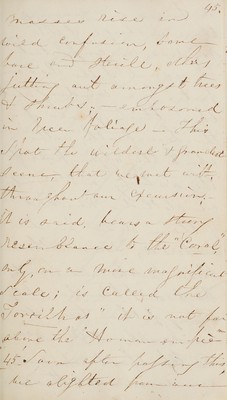 45.
masses rise in
wild confusion, some
bare and sterile, others
jutting out amongst trees
& shrubs, – embosomed
in Green Foliage – this
Spot the wildest & grandest
scene, that we met with,
throughout our excursion.
It is said, bears a strong
resemblance to the "Corral",
only, on a more magnificent
scale; is called the
it is not far
above the
45. Soon after passing this,
we alighted from our